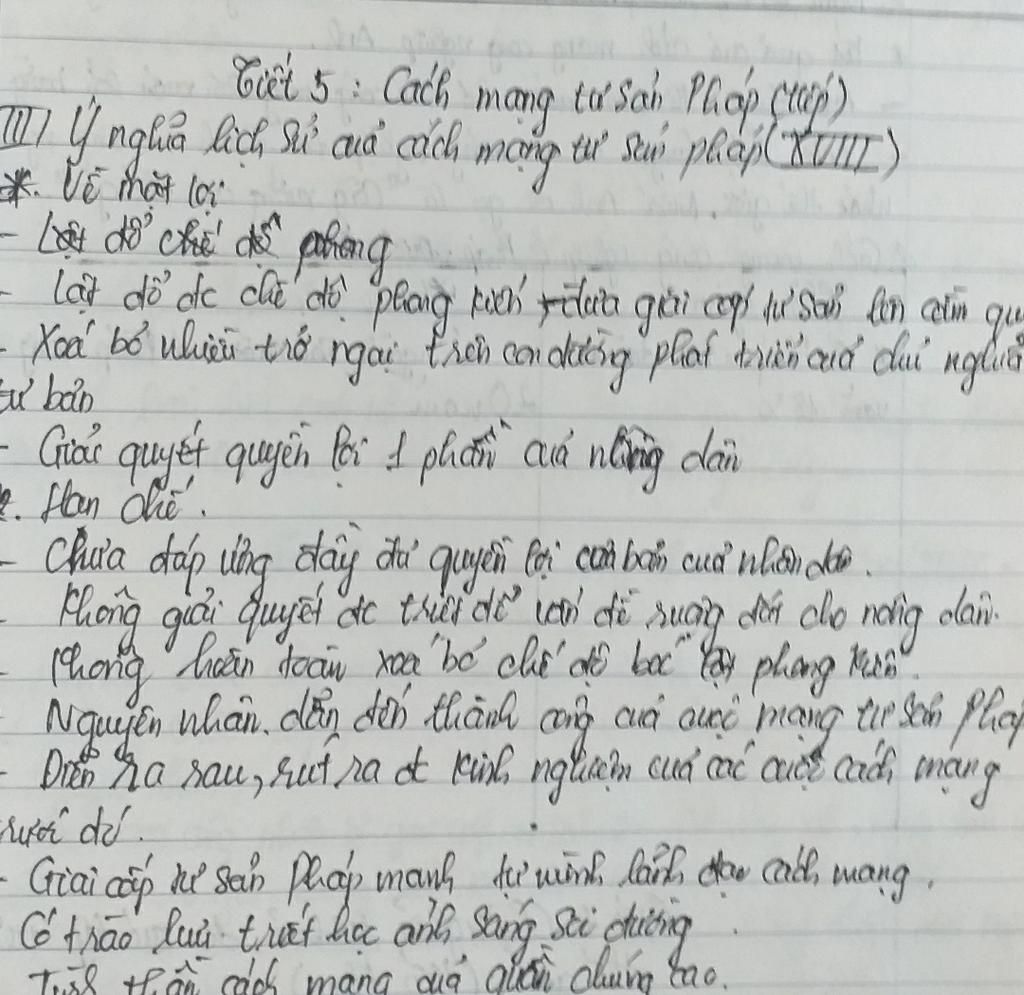 Tiết 5: Cách mạng tư sản Pháp (tiếp)
III) Ý nghĩa lịch sử của cách mạng tư sản pháp (XVIII)
*. Về mặt lợi
- Lật đổ chế độ phong
- Lật đổ đc chế độ phong kiến, đưa giai cấp tư sản lên cầm qu
- Xoá bỏ nhiều trở ngại trên con đường phát triển của chủ nghĩa
tư bản
- Giải quyết quyền lợi 1 phần của nông dân
*. Hạn chế.
- Chưa đáp ứng đầy đủ quyền lợi căn bản của nhân dân.
- Không giải quyết đc triệt để vấn đề ruộng đất cho nông dân.
- Không hoàn toàn xoá bỏ chế độ bóc lột phong kiến.
- Nguyên nhân dẫn đến thành công của cuộc mạng tư sản Pháp
- Diễn ra sau, rút ra đc kinh nghiệm của các cuộc cách mạng
trước đó.
- Giai cấp tư sản Pháp mạnh tự mình lãnh đạo cách mạng.
Có trào lưu triết học ánh sáng soi đường.
Tinh thần cách mạng của quần chúng cao.